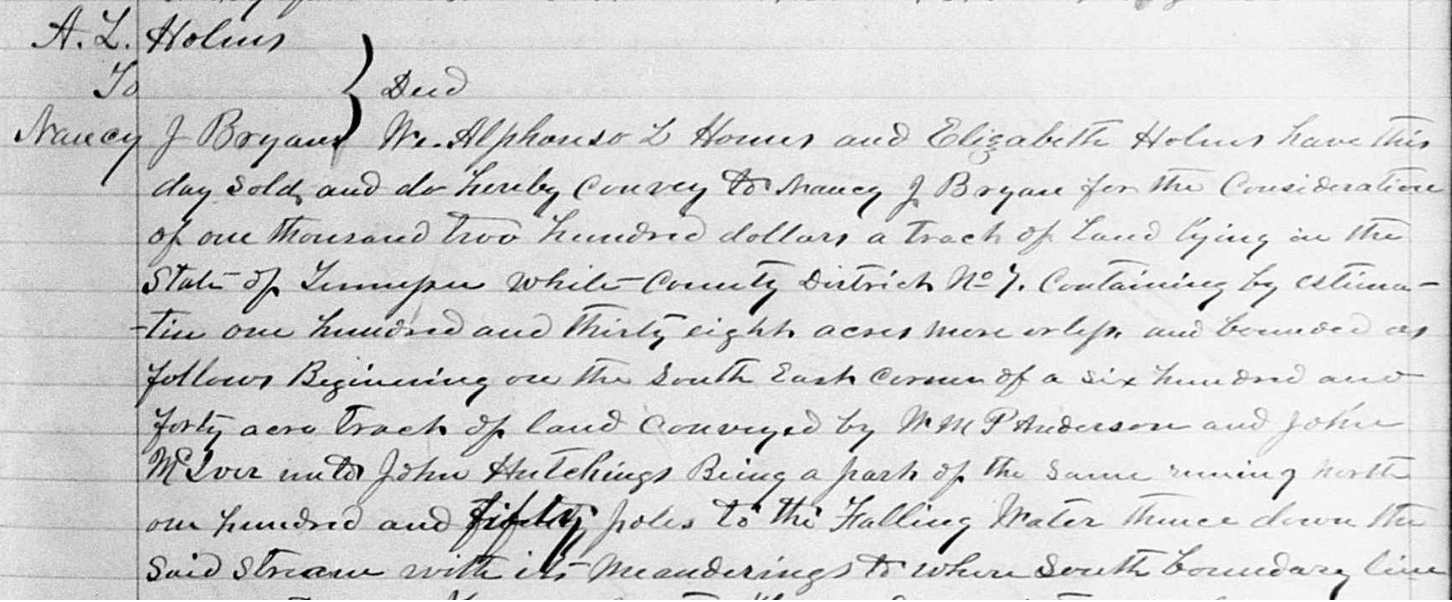 A. L. Holms
To } Deed
Nancy J Bryan We. Alphonso L Homes and Elizabeth Holms have this
day sold, and do hereby convey to Nancy J Bryan for the Consideration
of one thousand two hundred dollars a track of Land lying in the
State of Tennessee White County District No 7. Containing by estima-
-tin one hundred and thirty eight acres more or less and bounded as
follows Beginning on the South East corner of a six hundred and
forty acre track of land conveyed by Wm P Anderson and John
McIver unto John Hutchings Being a part of the same runing north
one hundred and fifty poles to the Falling Water thence down the
said stream with its meanderings to where South boundary line